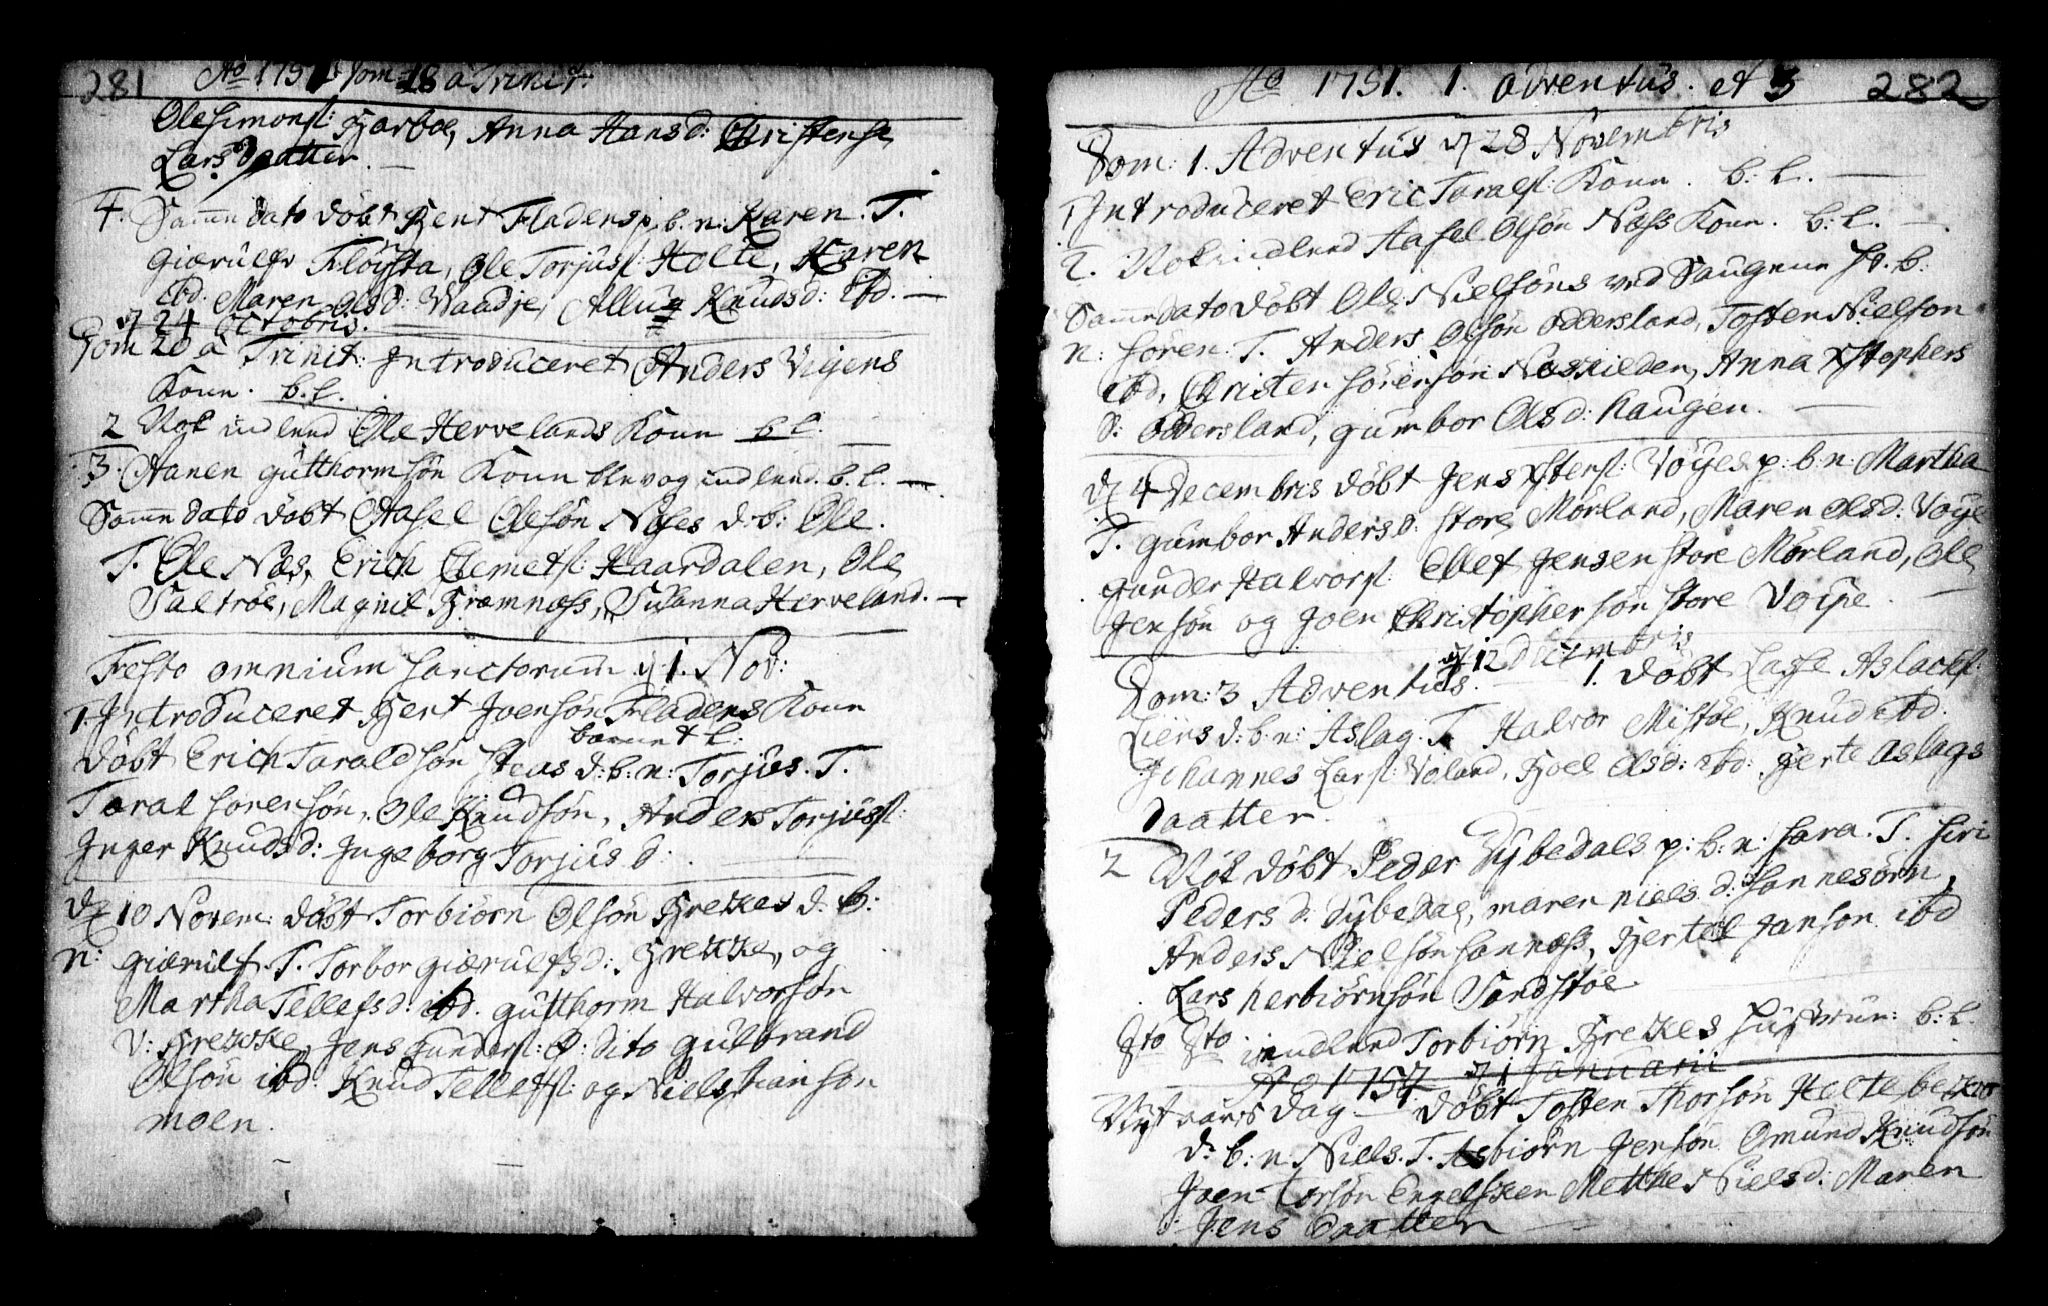 281 Ao 1751 Dom 18 a Trinit.
Ole Simons: Harboe, Anna Hansd: Christense
Lars Daatter. —
4. Samme dato döbt Bent Fladens p. b. n: Karen. T.
Giærulfv Flöista, Ole Torjus: Holte, Karen
ibd. Maren Olsd: Vaadje, Knudsd: ibd. —
d 24 octobris.
Dom 20 a Trinit: Introduceret Anders Vigens
Konn. b. l.
2 Nok indlend Ole Hervelands Konn b l.
3. Aanen gutthormsön Konn blev og indlend. b. l. —
Samme dato döbt Aasel Olesön Neses d. b: Ole.
T. Ole Næs, Erich Clemets: Haardalen, Ole
Saltröe, Magnil Bræmnæss, Susanna Herveland. —
Festo omnium sanctorum d 1. Nov:
1. Introduceret Bent Joensön Fladens Konn
barnet l:
Döbt Erich Taraldsön Steas d: b: n: Torjus. T.
Taral Sörensön, Ole Knudsön, Anders Torjuss:
Inger Knudsd: Ingeborg Torjusd:
d 10 Novem: döbt Torbiörn Olsön Brekkes d. b:
n: giærulf. T. Torbor giærulfsd: Brekke, og
Martha Tellefsd. ibd. gutthorm Halvorsön
v: Brekke, Jens Gunders: ö: dito gulbrand
Olsön ibd. Knud Tellefs: og Niels Stianson
moen.
Ao 1751. 1. adventus. et 3 282
Dom: 1. Adventus d 28 Novembris
1. Introduceret Eric Tarals: Konn. b: l. —
2. Nok indlend Aasel Olsön Næss Konn. b: l. —
Samme dato döbt Ole Nielsöns ved Haugene d. b:
n: Sören. T. Anders Olsön oddersland, Tosten Nielson
ibd, Christen Sörensön Naskilden, Anna Xstophers
D: Oddersland, gumbor Olsd: haugen. —
d 4 Decembris döbt Jens Xstens: Vöyes p: b: n: Martha
T. gumbor Andersd: store Mörland, Maren Olsd: Vöye
gunder Halvors: Ellef Jensen store Mörland, Ole
Jensön og Joen Christophersön store Vöye. —
d 12 Decembris
Dom: 3 Adventus. 1. Döbt Lasse Aslacks:
Liens d: b: n: Aslag. T. Halvor Mistöe, Knud ibd.
Johannes Lars: Voland, Kjoel Olsd: ibd: Berte Aslags
Daatter.
2 Nok döbt Peder Dybedals p: b: n: Sara. T. Siri
Pedersd: Dybedal, maren nielsd: Sannesörn,
Anders Nielsön Sannæss, Bertel Janson ibd
Lars herbiörnsön Sandstöe
Jto Dto indlend Torbiörn Brekkes Hustrue: b: l.
Ao 1752. d 1 Januarii
Nyt aars dag — döbt Tosten Thorsön Heltebekes
d: b: n: Niels. T. Asbiörn Jensön Omund Knudsön
Joen Torsön Engelsken Metthe Nielsd: Maren
Jens Daatter —